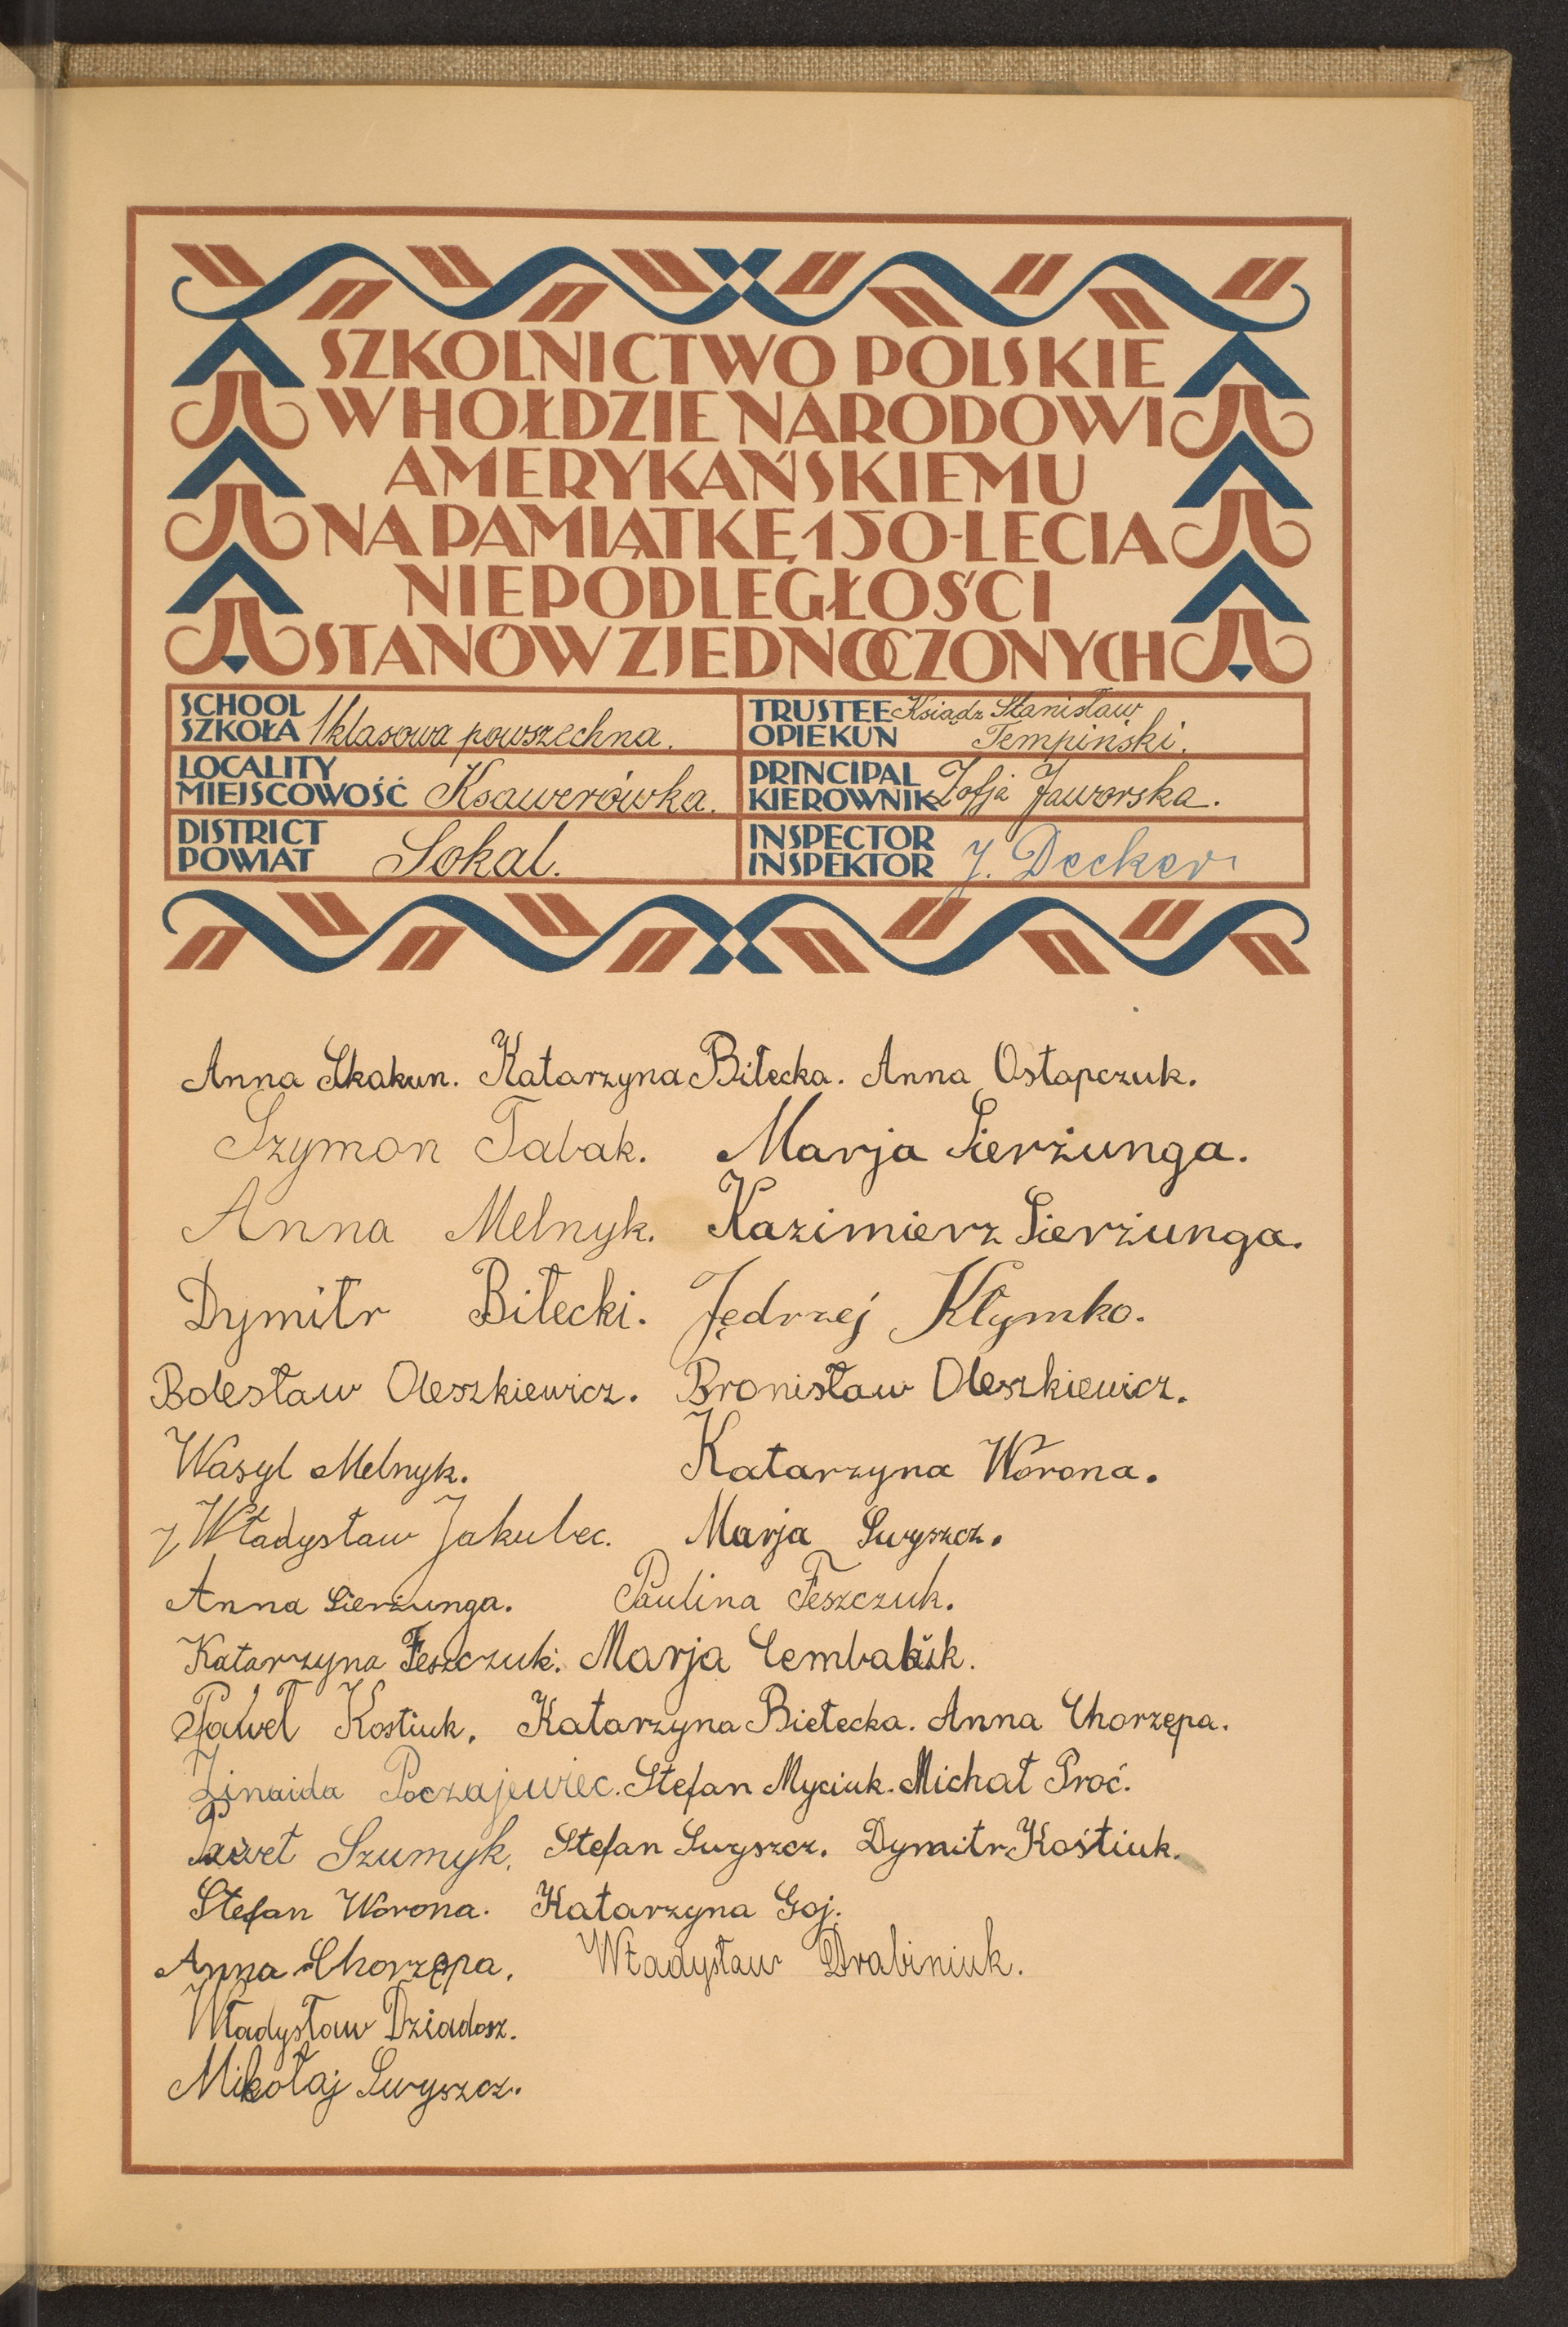 SZKOLNICTWO POLSKIE
W HOŁDZIE NARODOWI
AMERYKAŃSKIEMU
NA PAMIĄTKĘ 150-LECIA
NIEPODLEGŁOŚCI
STANÓW ZJEDNOCZONYCH
SCHOOL
SZKOŁA 1 klasowa powszechna.
LOCALITY
MIEJSCOWOŚĆ Ksawerówka.
DISTRICT
POWIAT Sokal.
TRUSTEE Ksiądz Stanisław
OPIEKUN Tempiński.
PRINCIPAL
KIEROWNIK Zofja Jaworska.
INSPECTOR
INSPEKTOR J. Decker
Anna Skakun. Katarzyna Biłecka. Anna Ostapczuk.
Szymon Tabak. Marja Sierżunga.
Anna Melnyk. Kazimierz Sierżunga.
Dymitr Biłecki. Jędrzej Kłymko.
Bolesław Oleszkiewicz. Bronisław Oleszkiewicz.
Wasyl Melnyk. Katarzyna Worona.
Władysław Jakubec. Marja Swyszcz.
Anna Sierżunga. Paulina Feszczuk.
Katarzyna Feszczuk. Marja
Paweł Kostiuk. Katarzyna Biełecka. Anna Chorzępa.
Zinaida Poczajewiec. Stefan Myciuk. Michał Proć.
Paweł Szumyk. Stefan Swyszcz. Dymitr Kośtiuk.
Stefan Worona. Katarzyna Goj.
Anna Chorzępa. Władysław Drabiniuk.
Władysław Dziadosz.
Mikołaj Swyszcz.